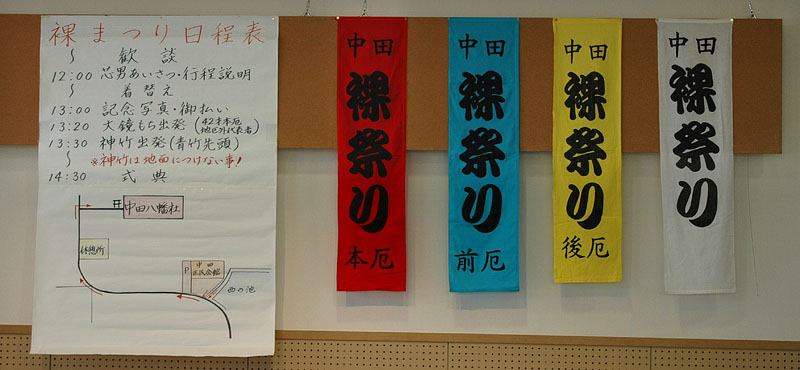 裸まつり日程表
〜 歓談
12:00 芯男あいさつ・行程説明
〜 着替え
13:00 記念写真・御払い
13:20 大鏡もち出発(42才本厄
地区外代表者)
13:30 神竹出発(青竹先頭)
〜 ※神竹は地面につけない事!
14:30 式典
中田八幡社
休憩所
P
中田
区民会館
西の池
中田
裸祭り
本厄
中田
裸祭り
前厄
中田
裸祭り
後厄
中田
裸祭り